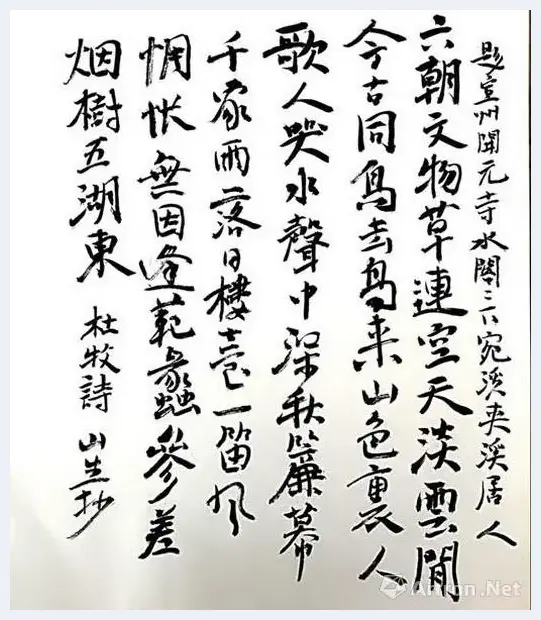 題宣州開元寺水閣〻下宛溪夾溪居人
六朝文物草連空天淡雲閒
今古同鳥去鳥来山色裏人
歌人哭水聲中深秋簾幕
千家雨落日樓臺一笛风
惆悵無因逢範蠡參差
烟樹五湖東 杜牧詩 山生抄
Artron.Net